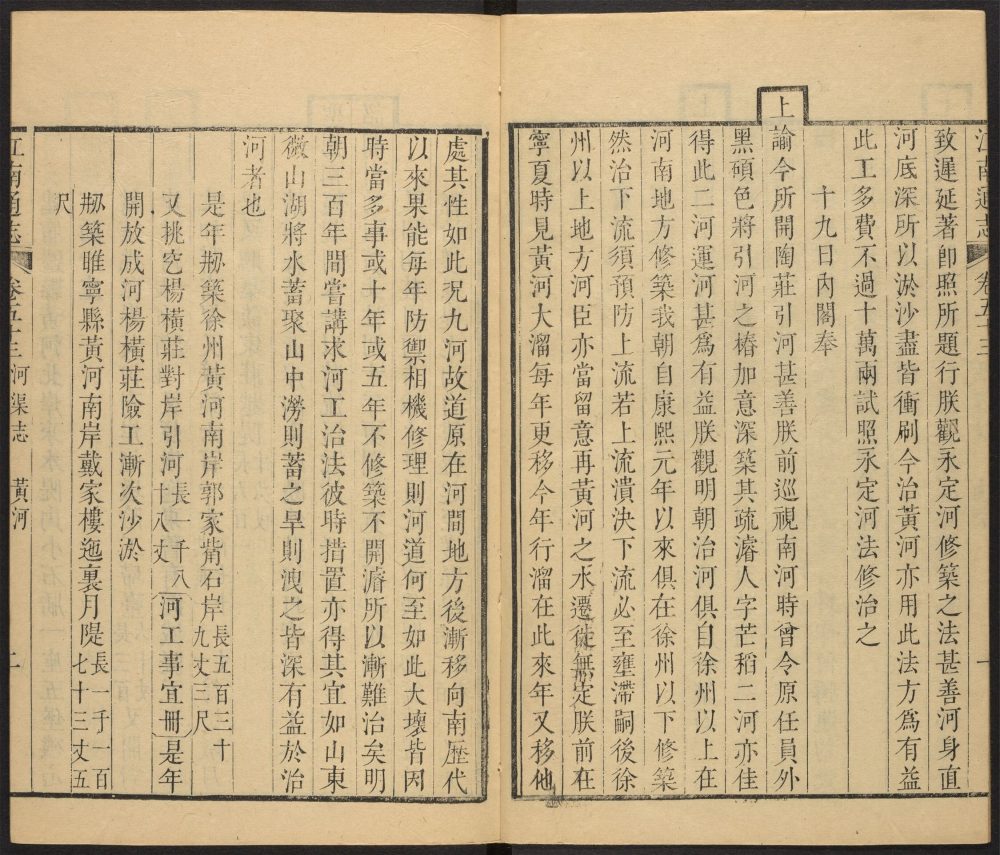 江南通志 卷五十三 一
致遲延著卽照所題行朕觀永定河修築之法甚善河身直
河底深所以淤沙盡皆衝刷今治黃河亦用此法方爲有益
此工多費不過十萬兩試照永定河法修治之
十九日內閣奉
上諭今所開陶莊引河甚善朕前巡視南河時曾令原任員外
黑碩色將引河之樁加意深築其疏濬人字芒稻二河亦佳
得此二河運河甚爲有益朕觀明朝治河俱自徐州以上在
河南地方修築我朝自康熙元年以來俱在徐州以下修築
然治下流須預防上流若上流潰決下流必至壅滯嗣後徐
州以上地方河臣亦當留意再黃河之水遷徙無定朕前在
寧夏時見黃河大溜每年更移今年行溜在此來年又移他
處其性如此況九河故道原在河間地方後漸移向南歷代
以來果能每年防禦相機修理則河道何至如此大壞皆因
時當多事或十年或五年不修築不開濬所以漸難治矣明
朝三百年間嘗講求河工治法彼時措置亦得其宜如山東
微山湖將水蓄聚山中澇則蓄之旱則洩之皆深有益於治
河者也
是年刱築徐州黃河南岸郭家觜石岸長五百三十九丈三尺
又挑穵楊橫莊對岸引河長一千八十八丈河工事宜冊是年
開放成河楊橫莊險工漸次沙淤
刱築睢寧縣黃河南岸戴家樓迤裏月隄長一千一百七十三丈五
尺
江南通志 卷五十三 河渠志 黃河 二